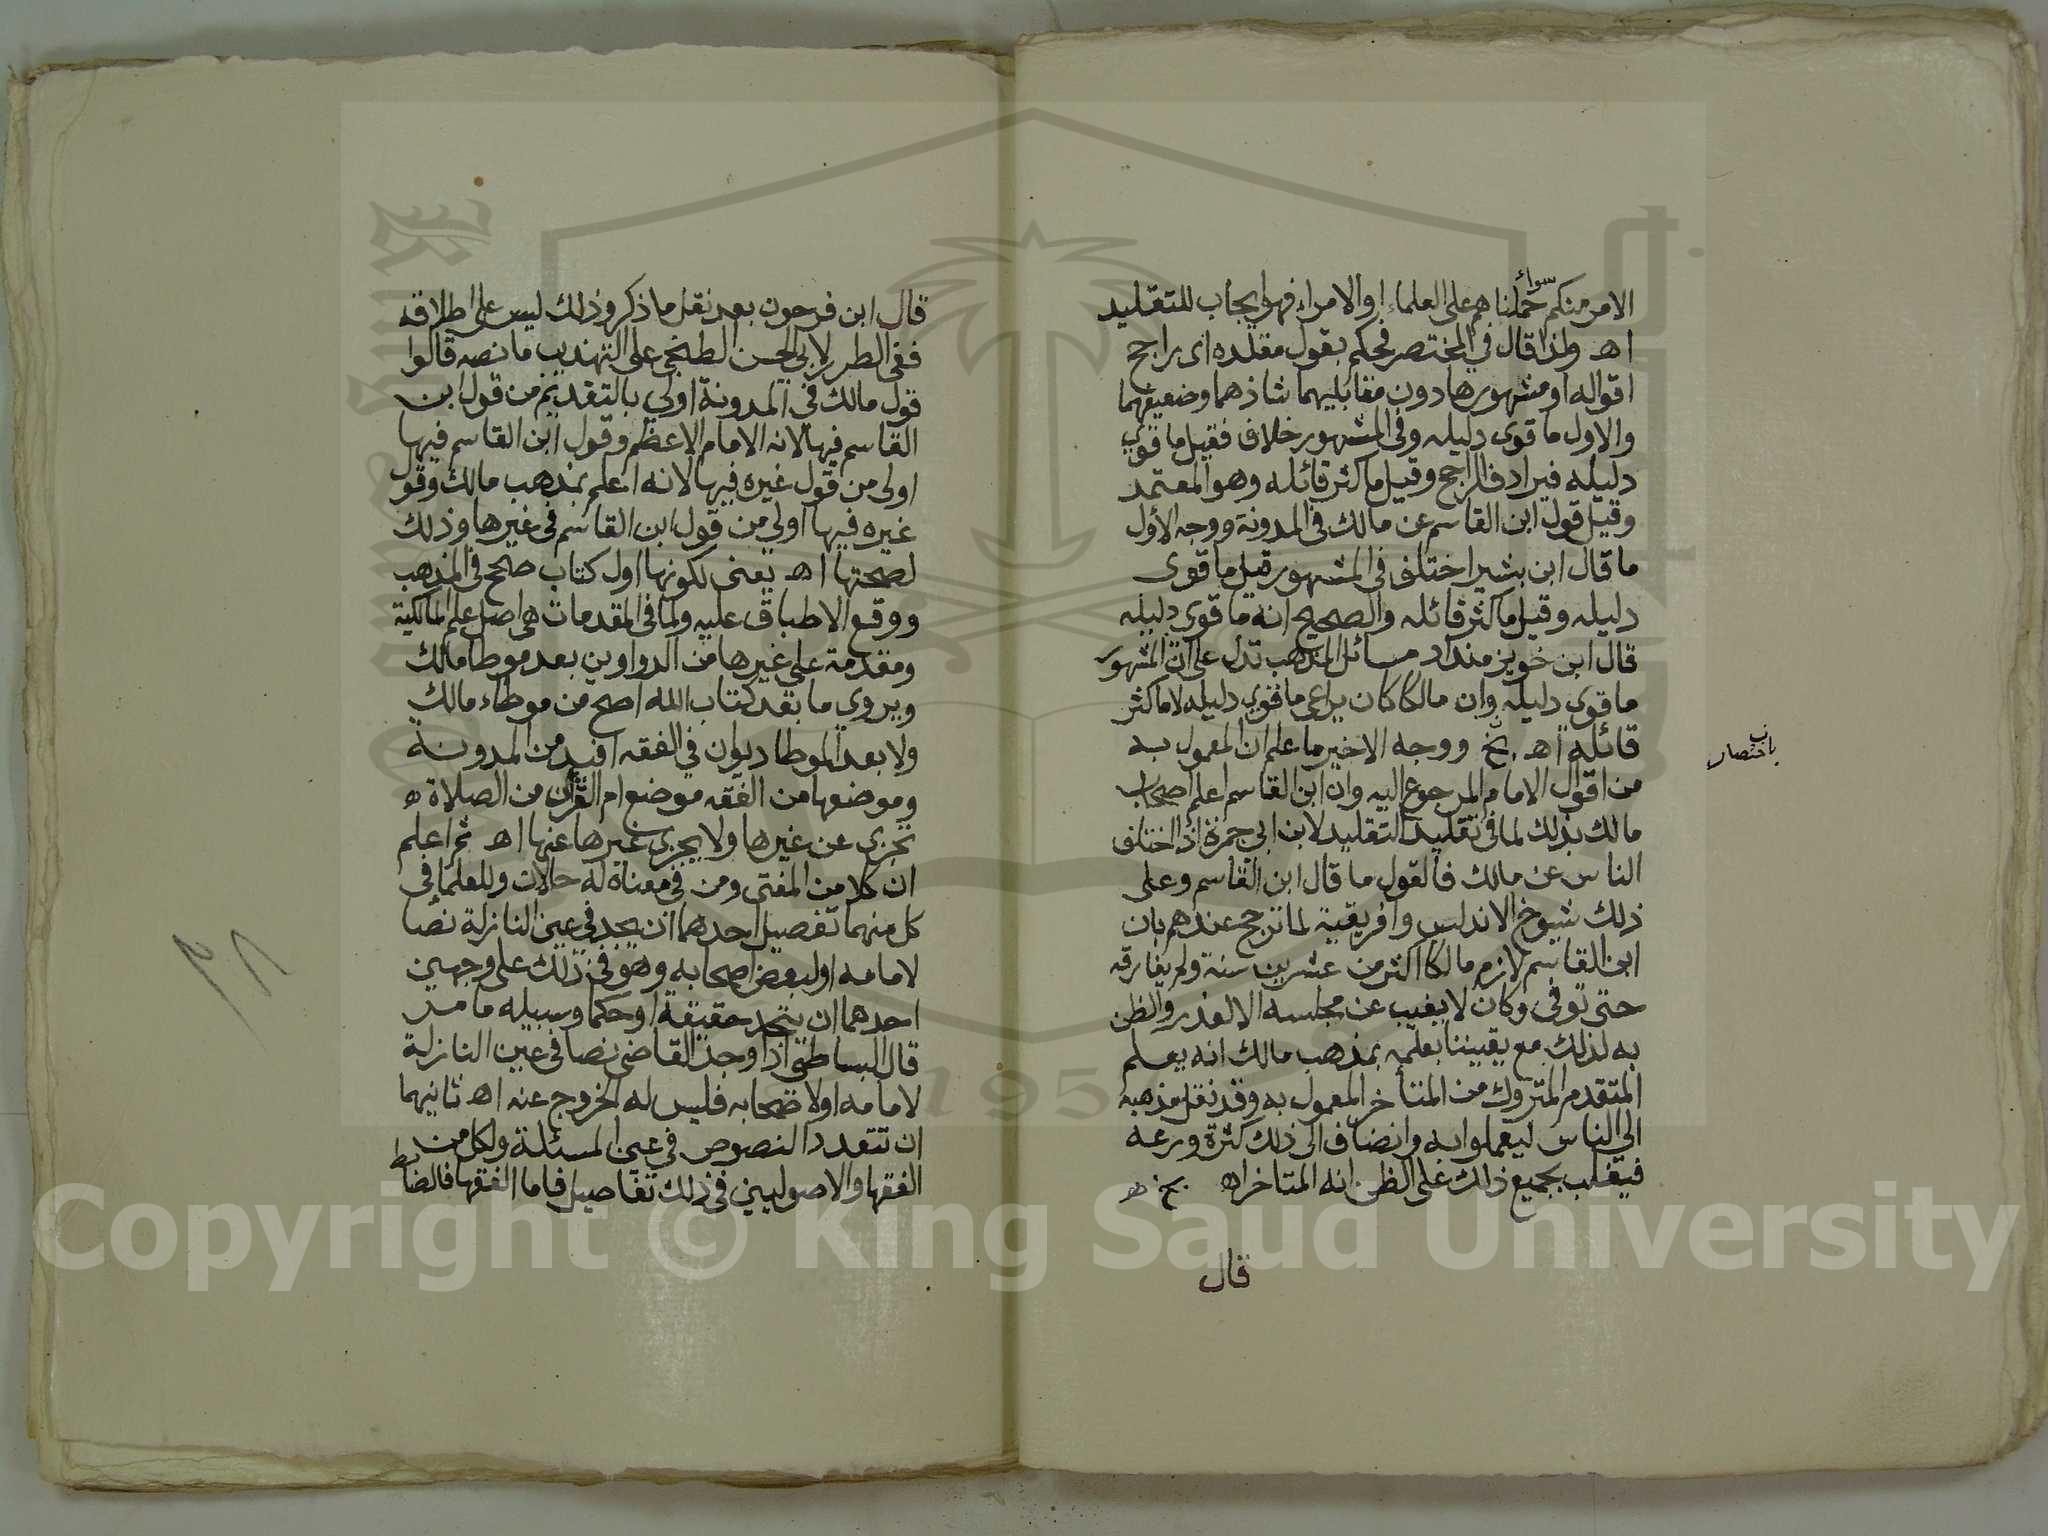 الامر منكم سواء حملناهم على العلماء او الامراء فهو ايجاب للتقليد
اهـ ولذا قال في المختصر فحكم بقول مقلده اى راجح
اقواله او مشهورها دون مقابليهما شاذهما وضعيفهما
والاول ما قوى دليله وفى المشهور خلاف فقيل ما قوي
دليله فيرادف الراجح وقيل ما كثر قائله وهو المعتمد
وقيل قول ابن القاسم عن مالك فى المدونة ووجه الأول
ما قال ابن بشير اختلف فى المشهور قيل ما قوى
دليله وقيل ما كثر قائله والصحيح انه ما قوى دليله
قال ابن خويز منداد مسائل المذهب تدل على ان المشهور
ما قوي دليله وان مالكا كان يراعى ما قوي دليله لا ما كثر
قائله اهـ بخ ووجه الاخير ما علم ان المعمول به
باختصار
من اقوال الامام المرجوع اليه وان ابن القاسم اعلم اصحاب
مالك بذلك لما فى تقليد التقليد لابن ابي جمرة اذا اختلف
الناس عن مالك فالقول ما قال ابن القاسم وعلى
ذلك شيوخ الاندلس وافريقية لما ترجح عندهم بان
ابن القاسم لازم مالكا اكثر من عشرين سنة ولم يفارقه
حتى توفى وكان لا يغيب عن مجلسه الا لعذر والظن
به لذلك مع يقيننا بعلمه بمذهب مالك انه يعلم
المتقدم المتروك من المتأخر المعمول به وقد نقل مذهبه
الى الناس ليعملوا به وانضاف الى ذلك كثرة ورعه
فيتغلب بجميع ذلك على الظن انه المتاخر اهـ بخ هـ
قال
قال ابن فرحون بعد نقل ما ذكر وذلك ليس على اطلاقه
ففى الطرر لابي الحسن الطنجي على التهذيب ما نصه قالوا
قول مالك في المدونة اولي بالتقديم من قول ابن
القاسم فيها لانه الامام الاعظم وقول ابن القاسم فيها
اولى من قول غيره فيها لانه اعلم بمذهب مالك وقول
غيره فيها اولي من قول ابن القاسم فى غيرها وذلك
لصحتها اهـ يعنى لكونها اول كتاب صحح فى المذهب
ووقع الاطباق عليه ولما فى المقدمات هى اصل علم المالكية
ومقدمة على غيرها من الدواوين بعد موطا مالك
ويروي ما بعد كتاب الله اصح من موطاء مالك
ولا بعد الموطا ديوان في الفقه افيد من المدونة
وموضوعها من الفقه موضع ام القرآن من الصلاة
تجزي عن غيرها ولا يجزى غيرها عنها اهـ ثم اعلم
ان كلا من المفتى ومن فى معناه له حالات وللعلما فى
كل منهما تفصيل احدهما ان يجد فى عين النازلة نصا
لامامه او لبعض اصحابه وهو فى ذلك على وجهين
احدهما ان يتحد حقيقة او حكما وسبيله ما مر
قال البساطى اذا وجد القاضى نصا فى عين النازلة
لامامه او لاصحابه فليس له الخروج عنه اهـ ثانيهما
ان تتعدد النصوص فى عين المسئلة ولكل من
الفقها والاصوليين فى ذلك تفاصيل فاما الفقها فالضابط
Copyright © King Saud University
1957